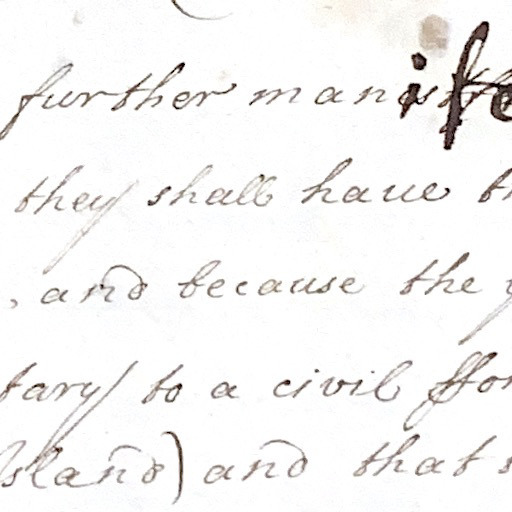 further manife
they shall haue th
, and because the
tary to a civil ffor
Island) and that s